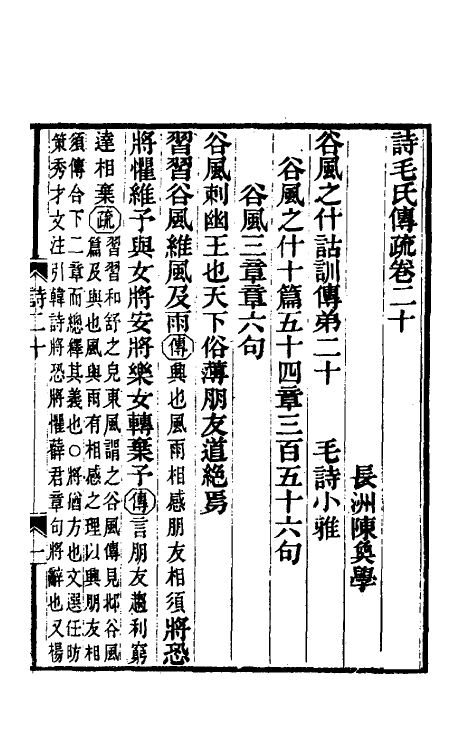 詩毛氏傳疏卷二十
長洲陳奐學
谷風之什詁訓傳弟二十 毛詩小雅
谷風之什十篇五十四章三百五十六句
谷風三章章六句
谷風刺幽王也天下俗薄朋友道絕焉
習習谷風維風及雨傳興也風雨相感朋友相須將恐
將懼維予與女將安將樂女轉棄予傳言朋友趨利窮
達相棄疏習習和舒之皃東風謂之谷風傳見邶谷風
篇及與也風與雨有相感之理以興朋友相
須傳合下二章而總釋其義也○將猶方也文選任昉
策秀才文注引韓詩將恐將懼薛君章句將辭也又楊
詩二十
一